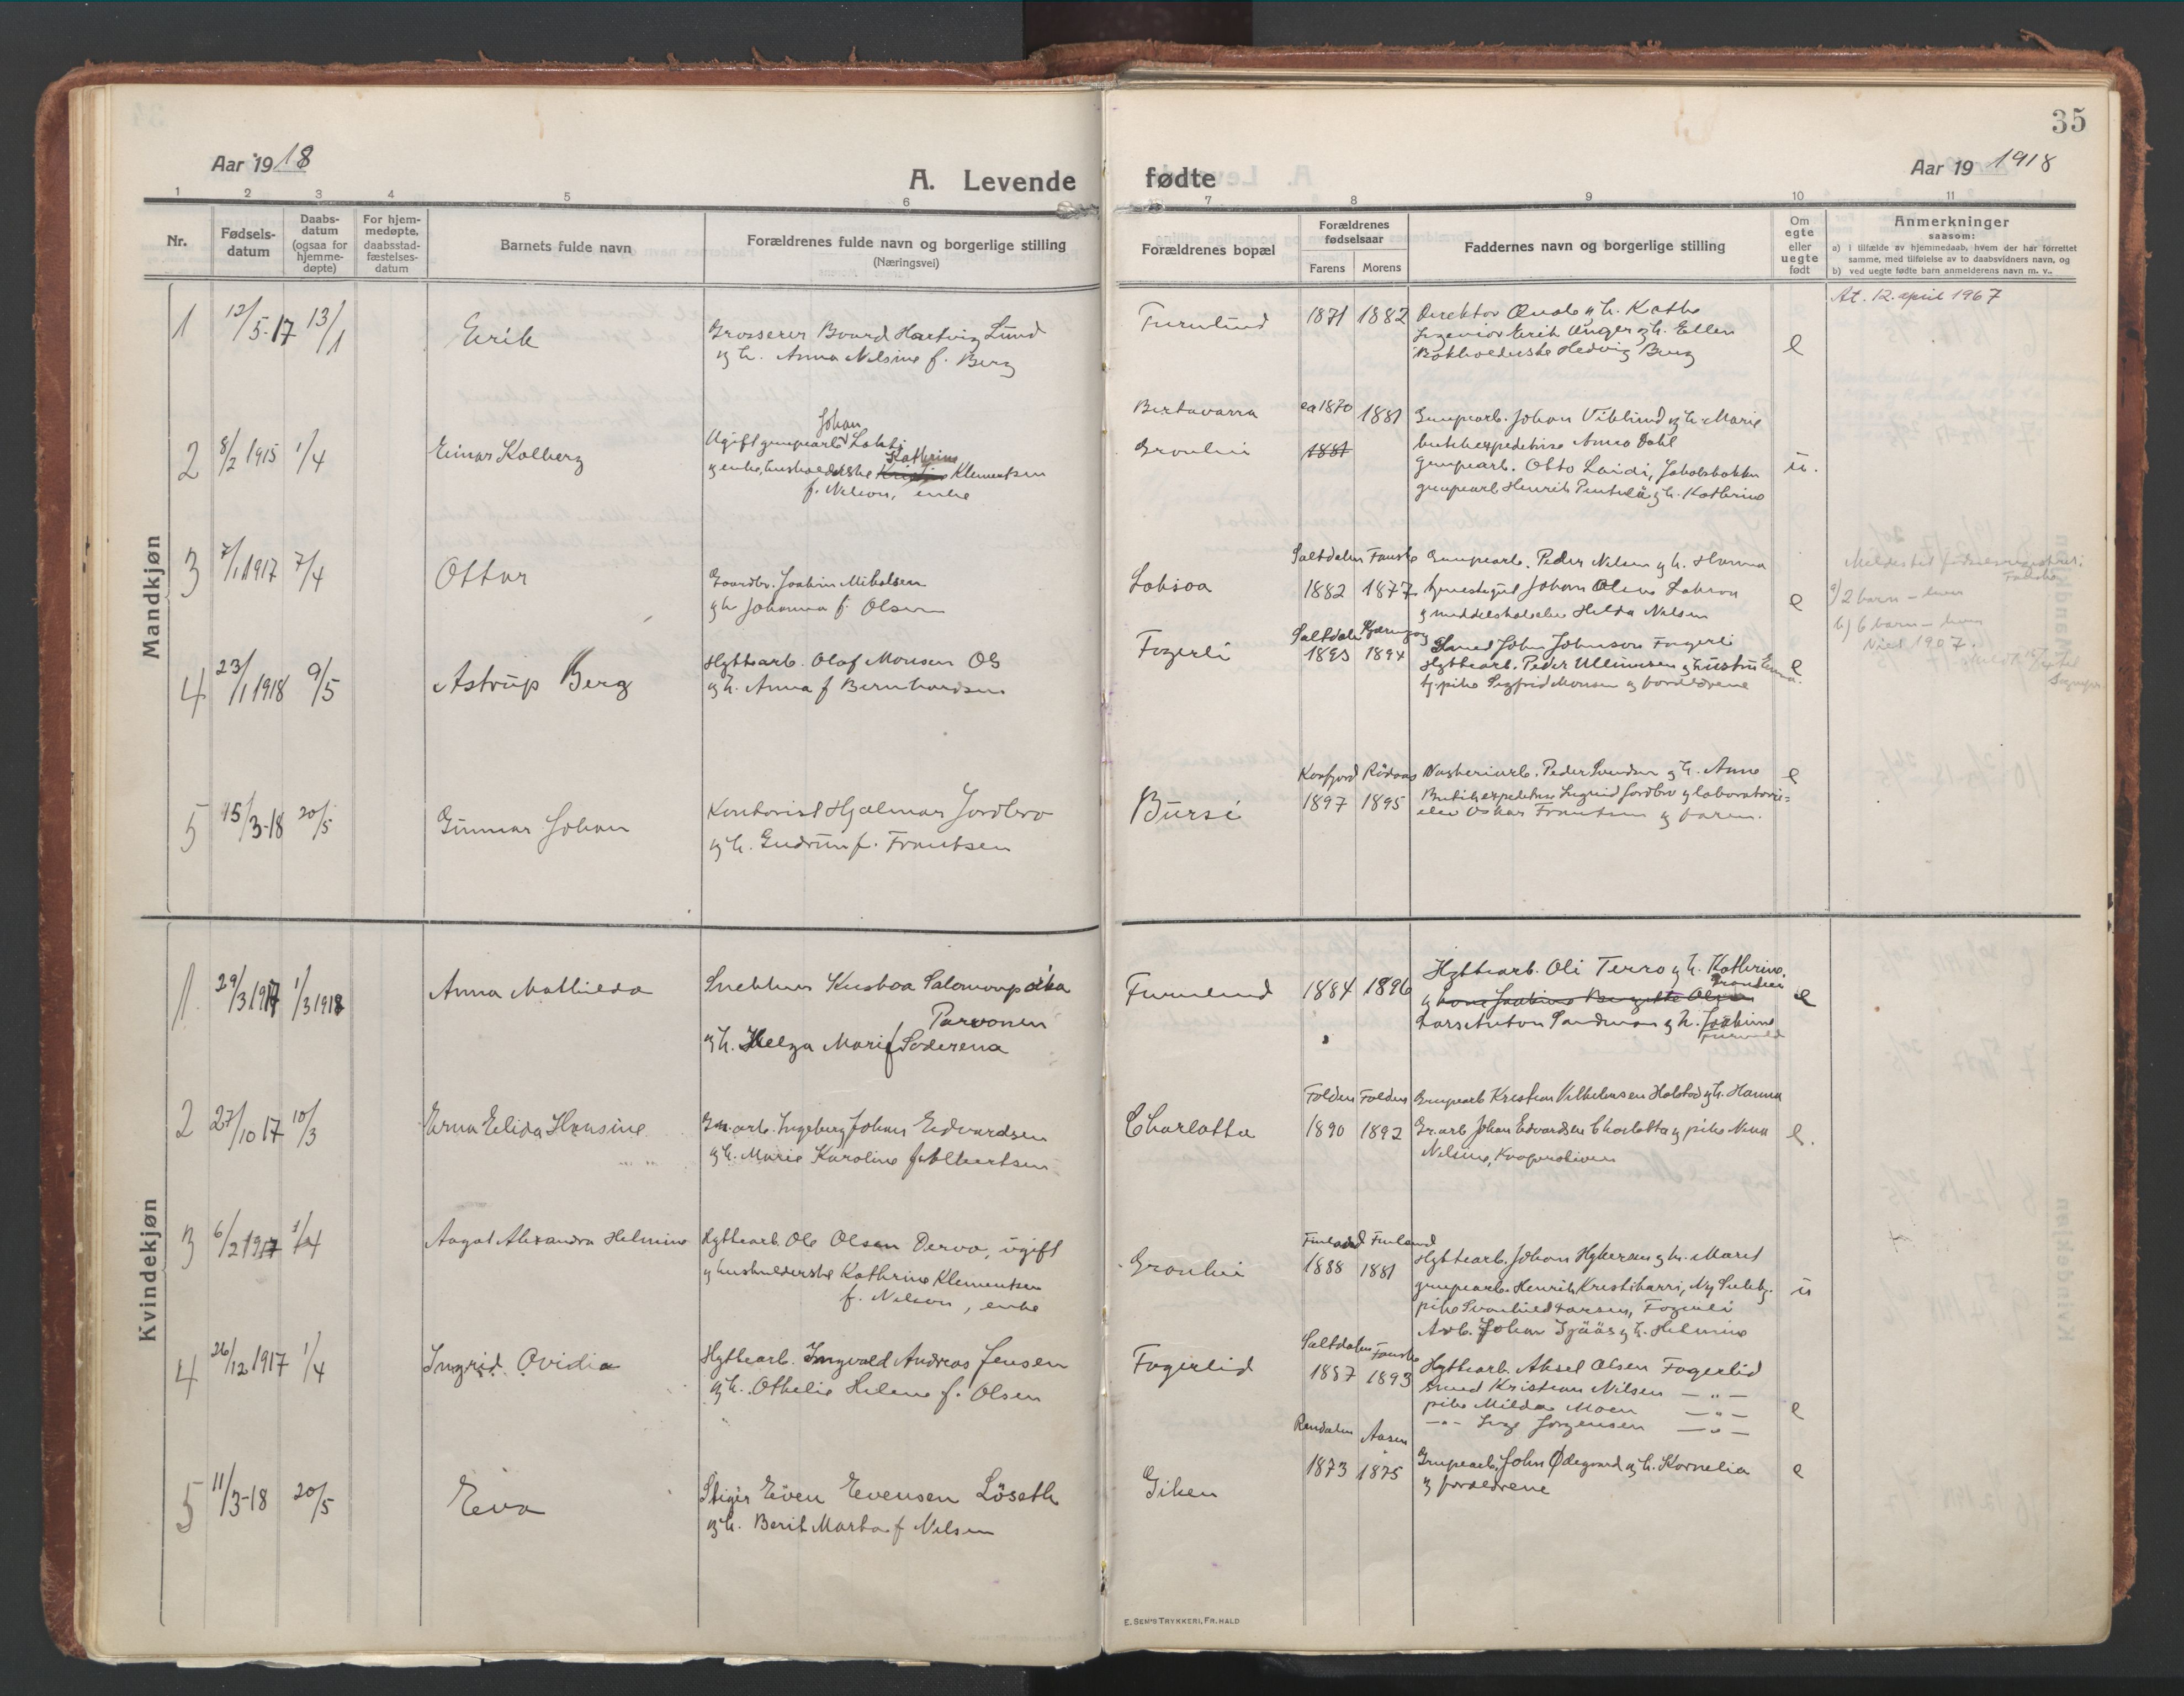 35
Aar 1918
A. Levende
fødte
Aar 19 1918
1 2 3 4 5 6
7 8 9 10 11
Nr.
Fødsels-
datum
Daabs-
datum
(ogsaa for
hjemme-
døpte)
For hjem-
medøpte,
daabsstad-
fæstelses-
datum
Barnets fulde navn
Forældrenes fulde navn og borgerlige stilling
(Næringsvei)
Forældrenes bopæl
Forældrenes
fødselsaar
Farens
Morens
Faddernes navn og borgerlige stilling
Om
egte
eller
uegte
født
Anmerkninger
saasom:
a) i tilfælde av hjemmedaab, hvem der har forrettet
samme, med tilføielse av to daabsvidners navn, og
b) ved uegte fødte barn anmelderens navn m. v..
Mandkjøn
1 12/5-17 13/1
Erik
Grosserer Baard Hartvig Lund
og h. Anna Nelsine f. Berg
Furulund
1871 1882
Direktor Quale og h. Kathe
Ingeniør Erik Unger og h. Ellen
Bokholderske Hedvig Berg
e
At. 12. april 1967
2 8/2 1915 1/4
Einar Kolberg
Johan
Ugift grupearb. Lahti
Kathrine
og enke, husholderske Klementsen
f. Nelson, enke
Bertavarra
Gronlii
ca 1870 1881
1881
Gruparb. Johan Viklund og h. Marie
butikexpeditrise Anna Dahl
gruparb. Otto Laidi, Jakobsbakken
gruparb. Henrik Pentulä og h. Kathrine
u.
3 7/1 1917 7/4
Ottar
Gaardbr. Joakim Mikalsen
og h. Johanna f. Olsen
Loksoa
Saltdalen Fauske
1882 1877
Gruparb. Peder Nilsen og h. Hanna
Johan Olsen
og middelskoleelev Hilda Nilsen
e
a) 2 barn –
b) 6 barn –
1907.
4 23/1 1918 9/5
Astrup Berg
Hyttearb. Olaf Monsen Os
og h. Anna f Bernhardsen
Fagerli
Saltdalen
1893 1894
Smed John Johnson Fagerli
Hyttearb. Peder Ullinesen og hustru Emma.
tj. pike Sigfrid Monsen og forældrene
e
5 15/3-18 20/5
Gunnar Johan
Kontorist Hjalmar Jordbro
og h. Gudrun f. Frantsen
Bursi
Korsfjord Rödøen
1897 1895
Vaskeriarb. Peder Svendsen og h. Anne
Butikexpeditrise Ingrid Jordbro og laboratorie-
elev Oskar Frantsen og faren.
e
Kvindekjøn
1. 29/3 1917 1/3 1918
Anna Mathilda
Snekker Kustaa Salomonpoika
Parvonen
og h. Helga Maria f Söderena
Furulund
1884 1896
Hyttearb. Oli Terro og h. Kathrine.
Lars Anton Sandman og h. Joakime
Furulund
e
2 27/10 17 10/3
Erna Elida Hansine
Gr.arb. Ingeberg Johan Edvardsen
og h. Marie Karoline f Albertsen
Charlotta
Folden Folden
1890 1892
Gruparb. Kristian Vilhelmsen Halstad og h. Hanna
Gr.arb. Johan Edvardsen Charlotta og pike Nina
Nelsine, Kooperativen
e.
3 6/2 1917 1/4
Aagot Alexandra Helmine
Hyttearb. Ole Olsen Dervo, ugift
og husholderske Kathrine Klementsen
f. Nelson, enke
Gronlii
Finland Finland
1888 1881
Hyttearb. Johan Hykeraa og h. Maret
gruparb. Henrik Kristiharri, Ny Sulitj.
pike Svanhild Larsen, Fagerli
Arb. Johan Ijäås og h. Helmine
u
4 26/12 1917 1/4
Ingrid Ovidia
Hyttearb. Ingvald Andreas Jensen
og h. Othelie Helene f. Olsen
Fagerlid
Saltdalen Fauske
1887 1893
Hyttearb. Aksel Olsen Fagerlid
smed Kristian Nilsen — " —
pike Milda Moen — " —
— " — Inge Jørgensen — " —
e
5 11/3-18 20/5
Eva
Stiger Even Evensen Löseth
og h. Berit Marta f Nilsen
Giken
Rendalen Aasen
1873 1875
Gruparb. John Ødegaard og h. Kornelia
og forældrene
e
E. SEM'S TRYKKERI, FR. HALD